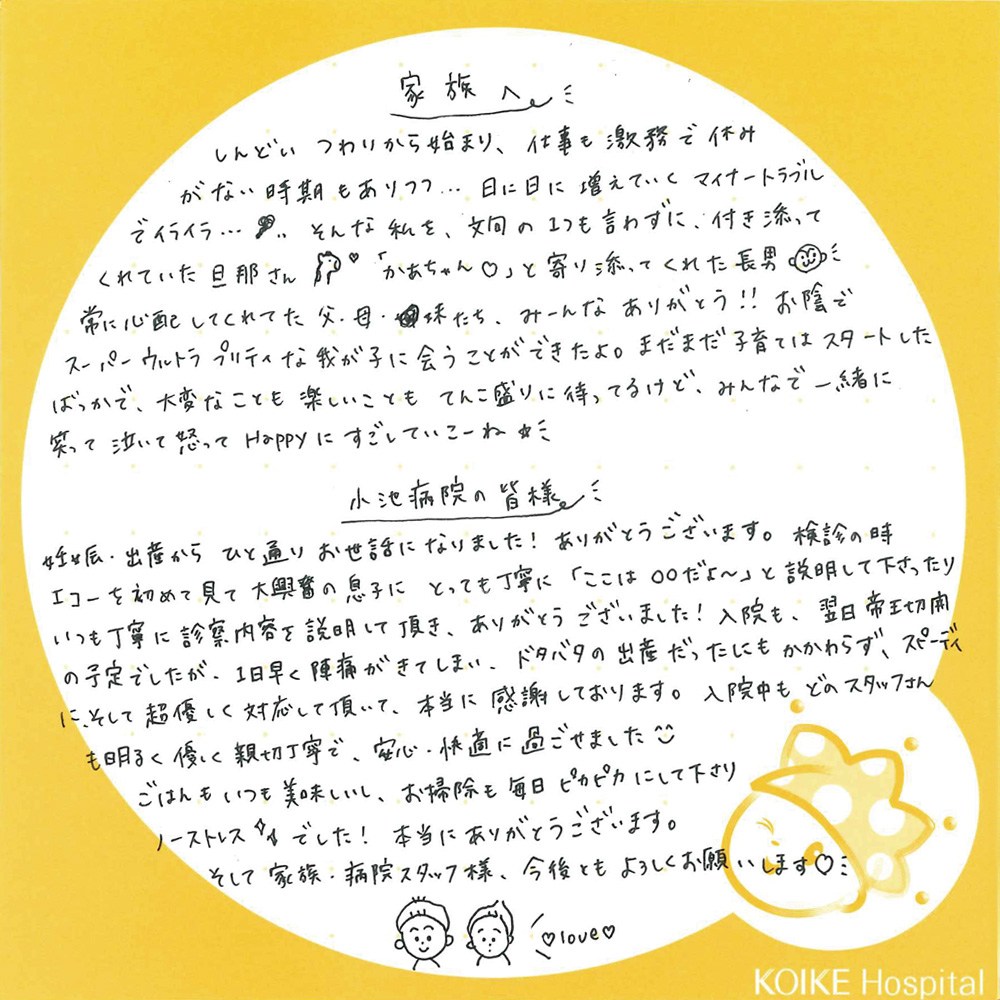 家族へ
しんどい つわりから始まり、仕事も激務で休み
がない時期もありつつ… 日に日に増えていくマイナートラブル
でイライラ… そんな私を、文句の1つも言わずに、付き添って
くれていた旦那さん ♡「かあちゃん♡」と寄り添ってくれた長男
常に心配してくれてた父・母・妹たち、みーんなありがとう!! お陰で
スーパーウルトラプリティな我が子に会うことができたよ。まだまだ子育てはスタートした
ばっかで、大変なことも楽しいこともてんこ盛りに待ってるけど、みんなで一緒に
笑って泣いて怒ってHappyにすごしていこーね☆
小池病院の皆様
妊娠・出産からひと通りお世話になりました! ありがとうございます。検診の時
エコーを初めて見て大興奮の息子に とっても丁寧に「ここは○○だよ〜」と説明して下さったり
いつも丁寧に診察内容を説明して頂き、ありがとうございました! 入院も、翌日帝王切開
の予定でしたが、1日早く陣痛がきてしまい、ドタバタの出産だったにもかかわらず、スピーディ
に、そして超優しく対応して頂いて、本当に感謝しております。入院中もどのスタッフさん
も明るく優しく親切丁寧で、安心・快適に過ごせました
ごはんもいつも美味しいし、お掃除も毎日ピカピカにして下さり
ノーストレスでした! 本当にありがとうございます。
そして家族・病院スタッフ様、今後ともよろしくお願いします♡
♡love♡
KOIKE Hospital